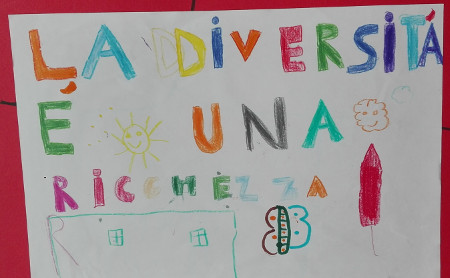 LA DIVERSITÁ
É UNA
RICCHEZZA